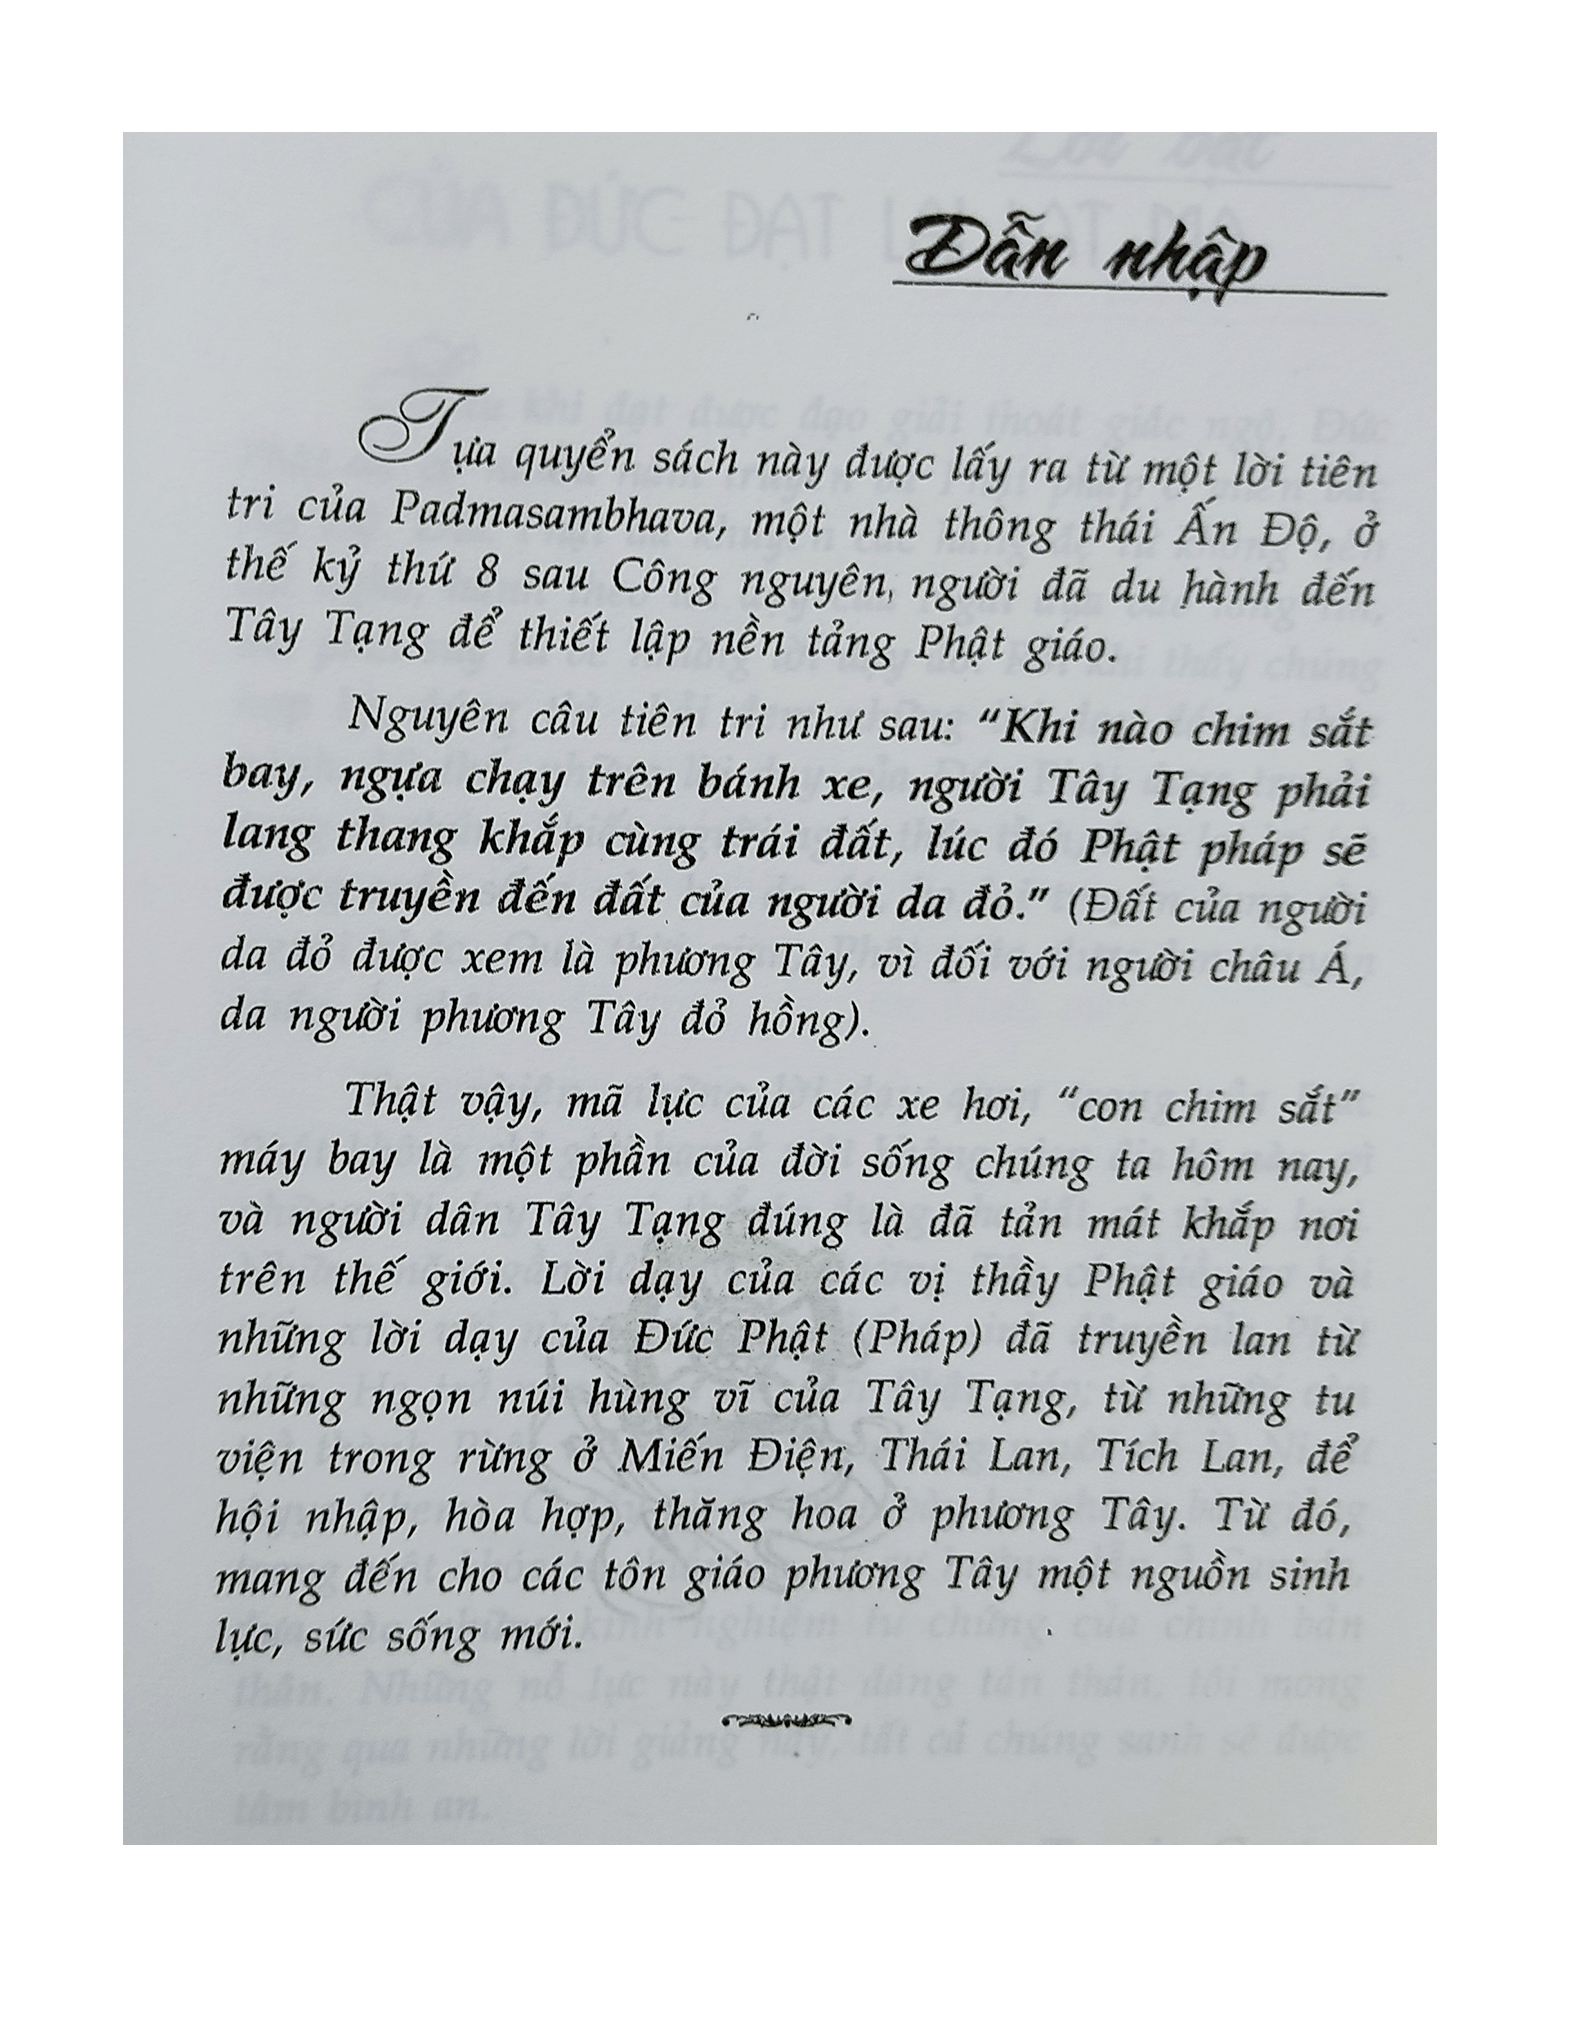 Dẫn nhập
Tựa quyển sách này được lấy ra từ một lời tiên
tri của Padmasambhava, một nhà thông thái Ấn Độ, ở
thế kỷ thứ 8 sau Công nguyên, người đã du hành đến
Tây Tạng để thiết lập nền tảng Phật giáo.
Nguyên câu tiên tri như sau: “Khi nào chim sắt
bay, ngựa chạy trên bánh xe, người Tây Tạng phải
lang thang khắp cùng trái đất, lúc đó Phật pháp sẽ
được truyền đến đất của người da đỏ.” (Đất của người
da đỏ được xem là phương Tây, vì đối với người châu Á,
da người phương Tây đỏ hồng).
Thật vậy, mã lực của các xe hơi, “con chim sắt”
máy bay là một phần của đời sống chúng ta hôm nay,
và người dân Tây Tạng đúng là đã tản mát khắp nơi
trên thế giới. Lời dạy của các vị thầy Phật giáo và
những lời dạy của Đức Phật (Pháp) đã truyền lan từ
những ngọn núi hùng vĩ của Tây Tạng, từ những tu
viện trong rừng ở Miến Điện, Thái Lan, Tích Lan, để
hội nhập, hòa hợp, thăng hoa ở phương Tây. Từ đó,
mang đến cho các tôn giáo phương Tây một nguồn sinh
lực, sức sống mới.